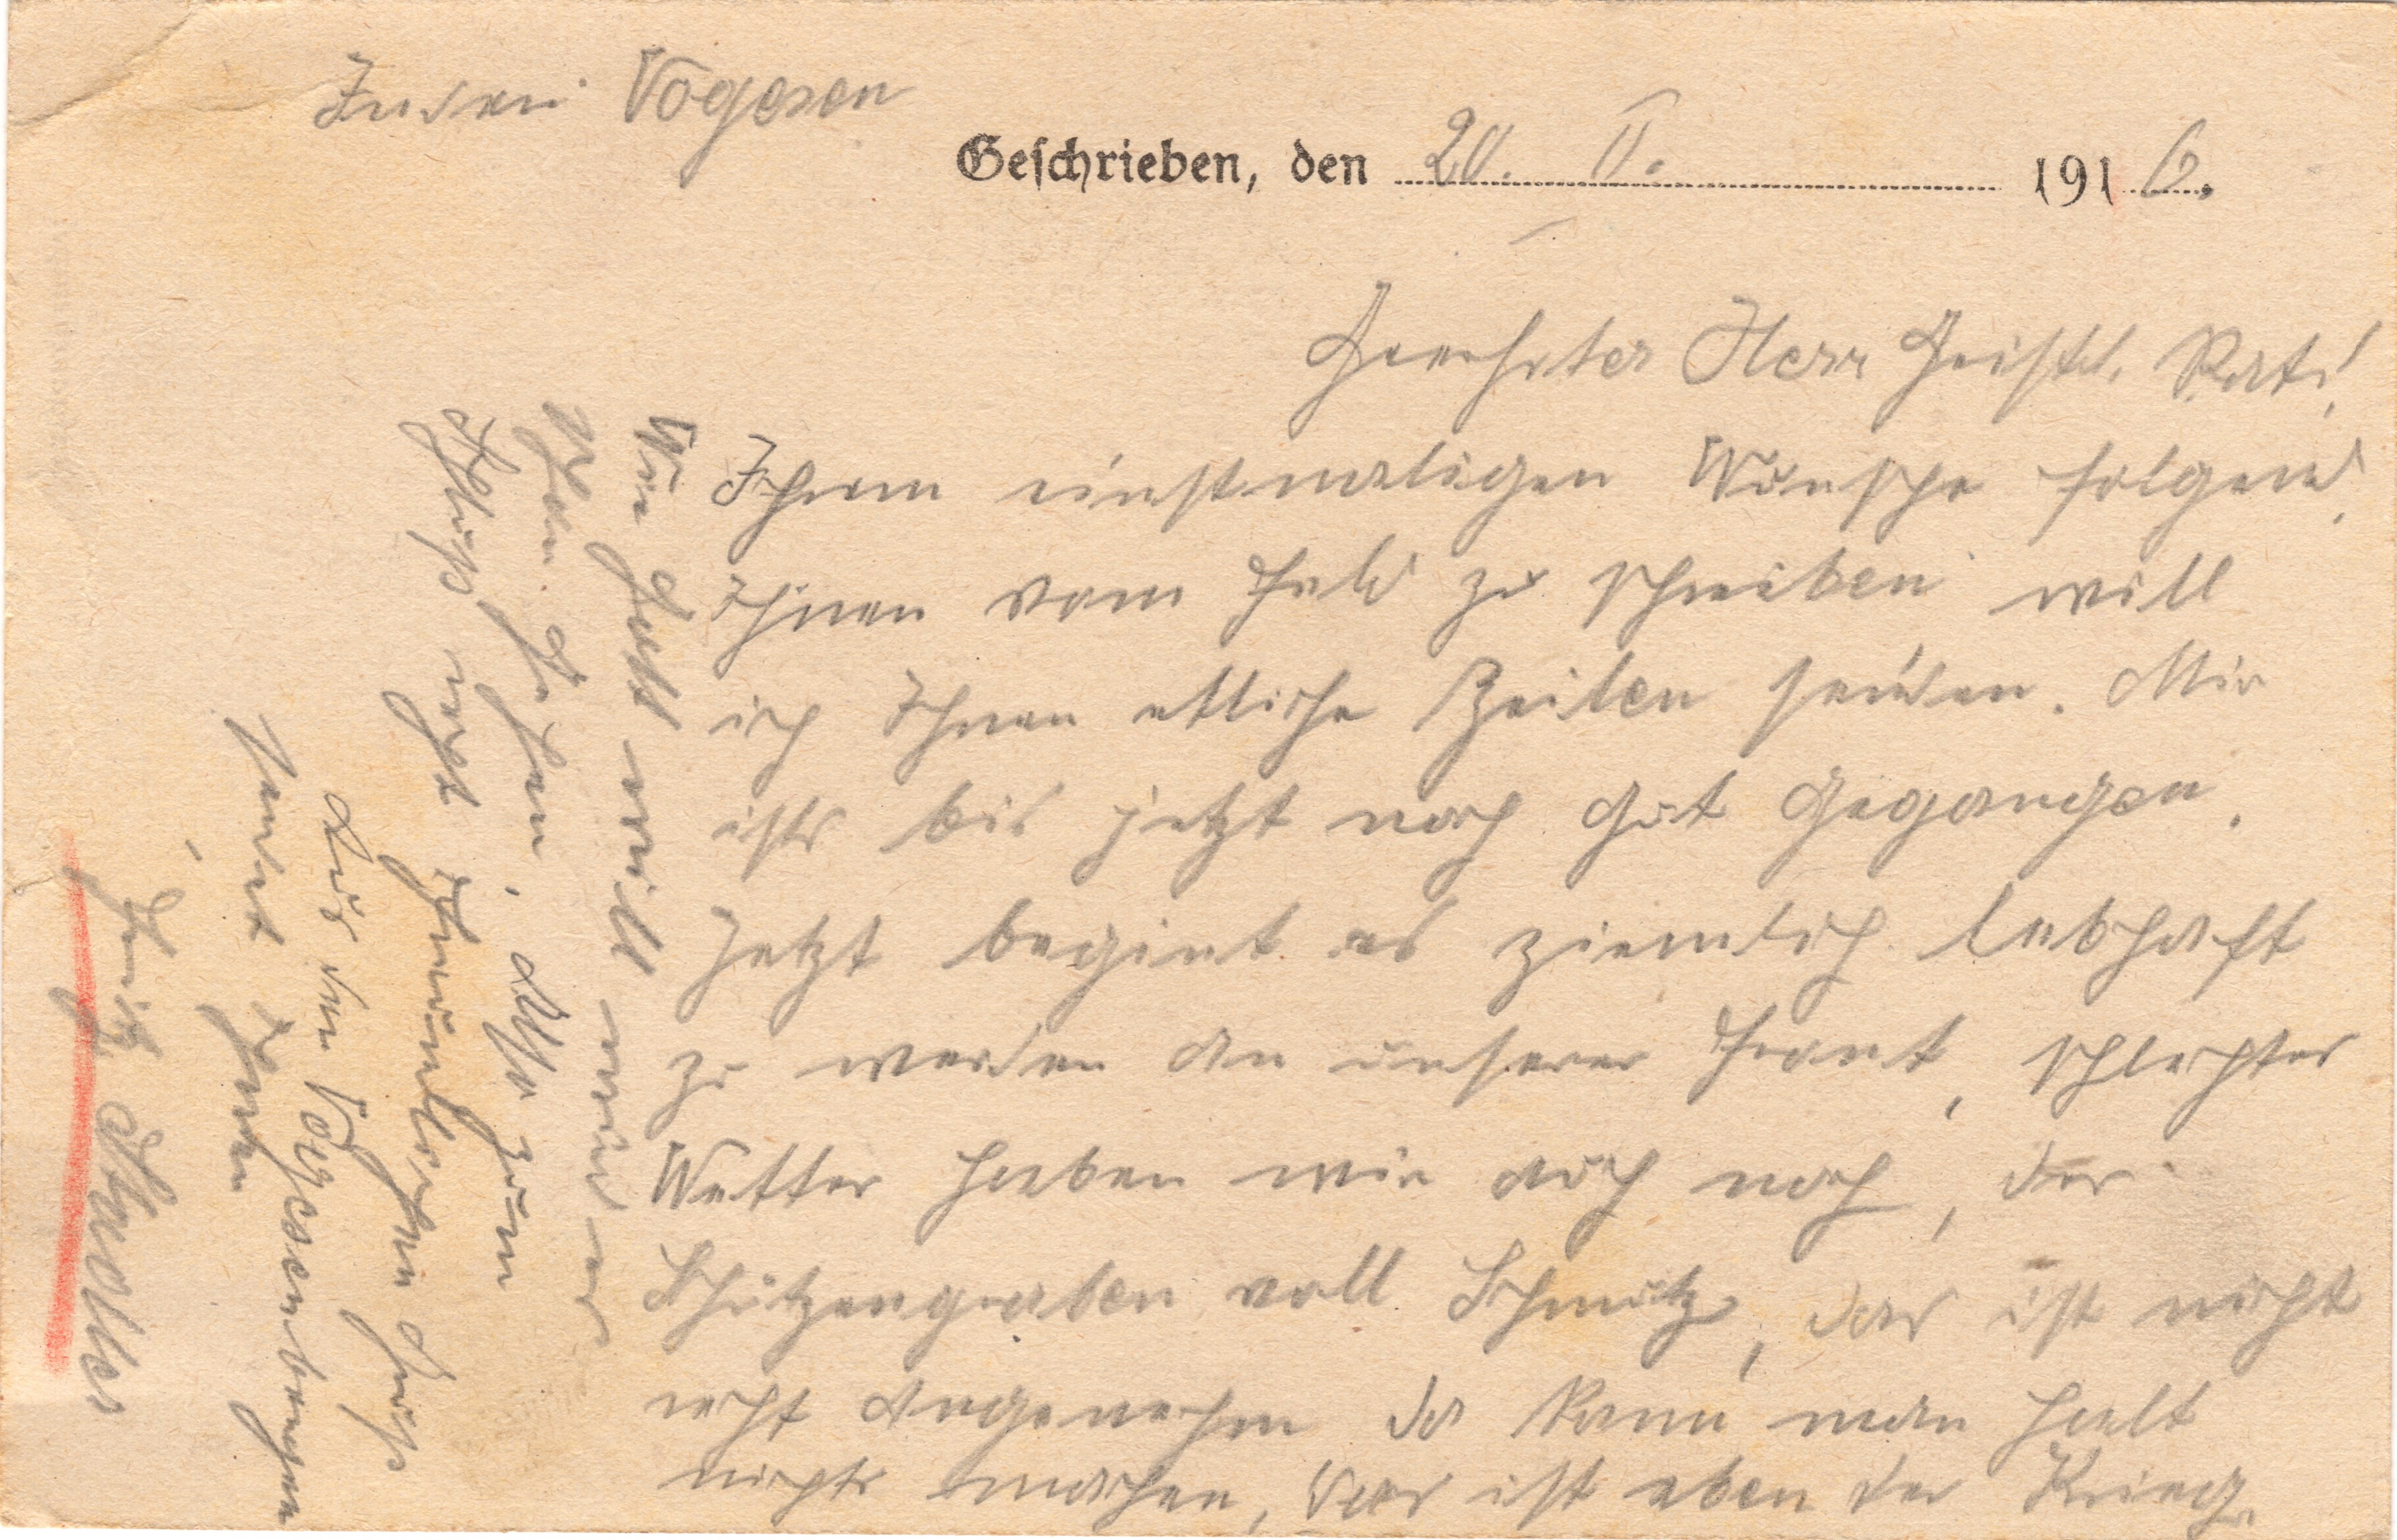 In den Vogesen
Geschrieben, den 20. II. 1916.
Geehrter Herr Geistl. Rat!
Ihrem einstmaligen Wunsche folgend,
Ihnen vom Feld zu schreiben will
ich Ihnen etliche Zeilen senden. Mir
ists bis jetzt noch gut gegangen.
Jetzt begint es ziemlich lebhaft
zu werden an unserer Front, schlechtes
Wetter haben wir auch noch, der
Schützengraben voll Schmutz, das ist nicht
recht angenehm da kann man halt
nichts machen, das ist eben der Krieg.
Wie Gott will wird es
schon gehen. Also zum
Schluß recht freundlichen Gruß
Aus den Vogesenbergen
sendet Ihnen
Fritz